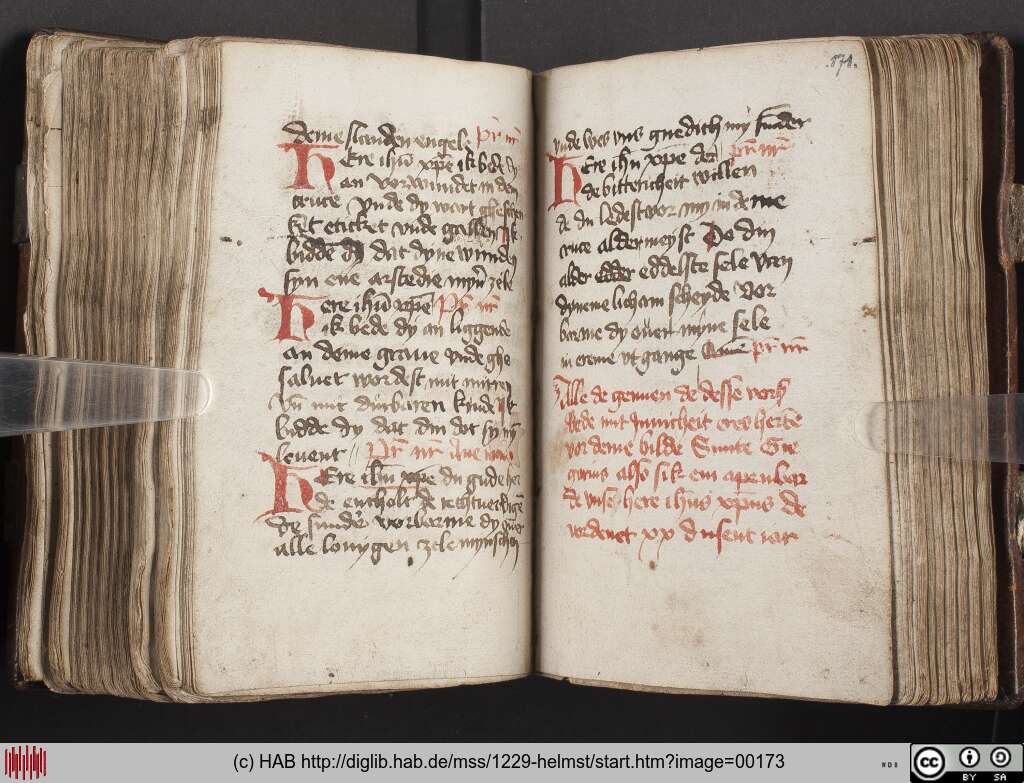 deme slanden engele pr̄ nr̄
Here ihū xp̄e ik bede dy
an vorwundet in dem
cruce vnde dy wart ghesch
ket etick vnde gallen Ik
bidde dy dat dyne wunden
syn ene arstedie myn̄ zele
Here ihū xp̄e Pr̄ nr̄
ik bede dy an liggende
an deme graue vnde ghe
saluet wordest mit mirren
vn̄ mit durbaren krude Ik
bidde dy dat din dot sy my
leuent Pr̄ nr̄ Aue maria
Here ihū xp̄e du gude her
de entholt de rechtuerdigen
de sunder vorbarme dy ouer
alle louigen czele mynschen
.174.
vnde wes vns gnedich my sunder
Here ihū xp̄e dorch pr̄ nr̄
de bittericheit willen
de du ledest vor my in deme
cruce aldermeyst Do din
alder edder eddelste sele van
dyneme licham scheyde Vor
barme dy ouer myne sele
in ereme vt gange Amē pr̄ nr̄
Alle de genen de desse vors
bede mit Innicheit eres herten
vor deme bilde Sunte Gre
gorius also sik em apenbar
de vnse here ihūs xp̄us de
vordenet xx dusent iar
(c) HAB http://diglib.hab.de/mss/1229-helmst/start.htm?image=00173
WDB
cc BY SA